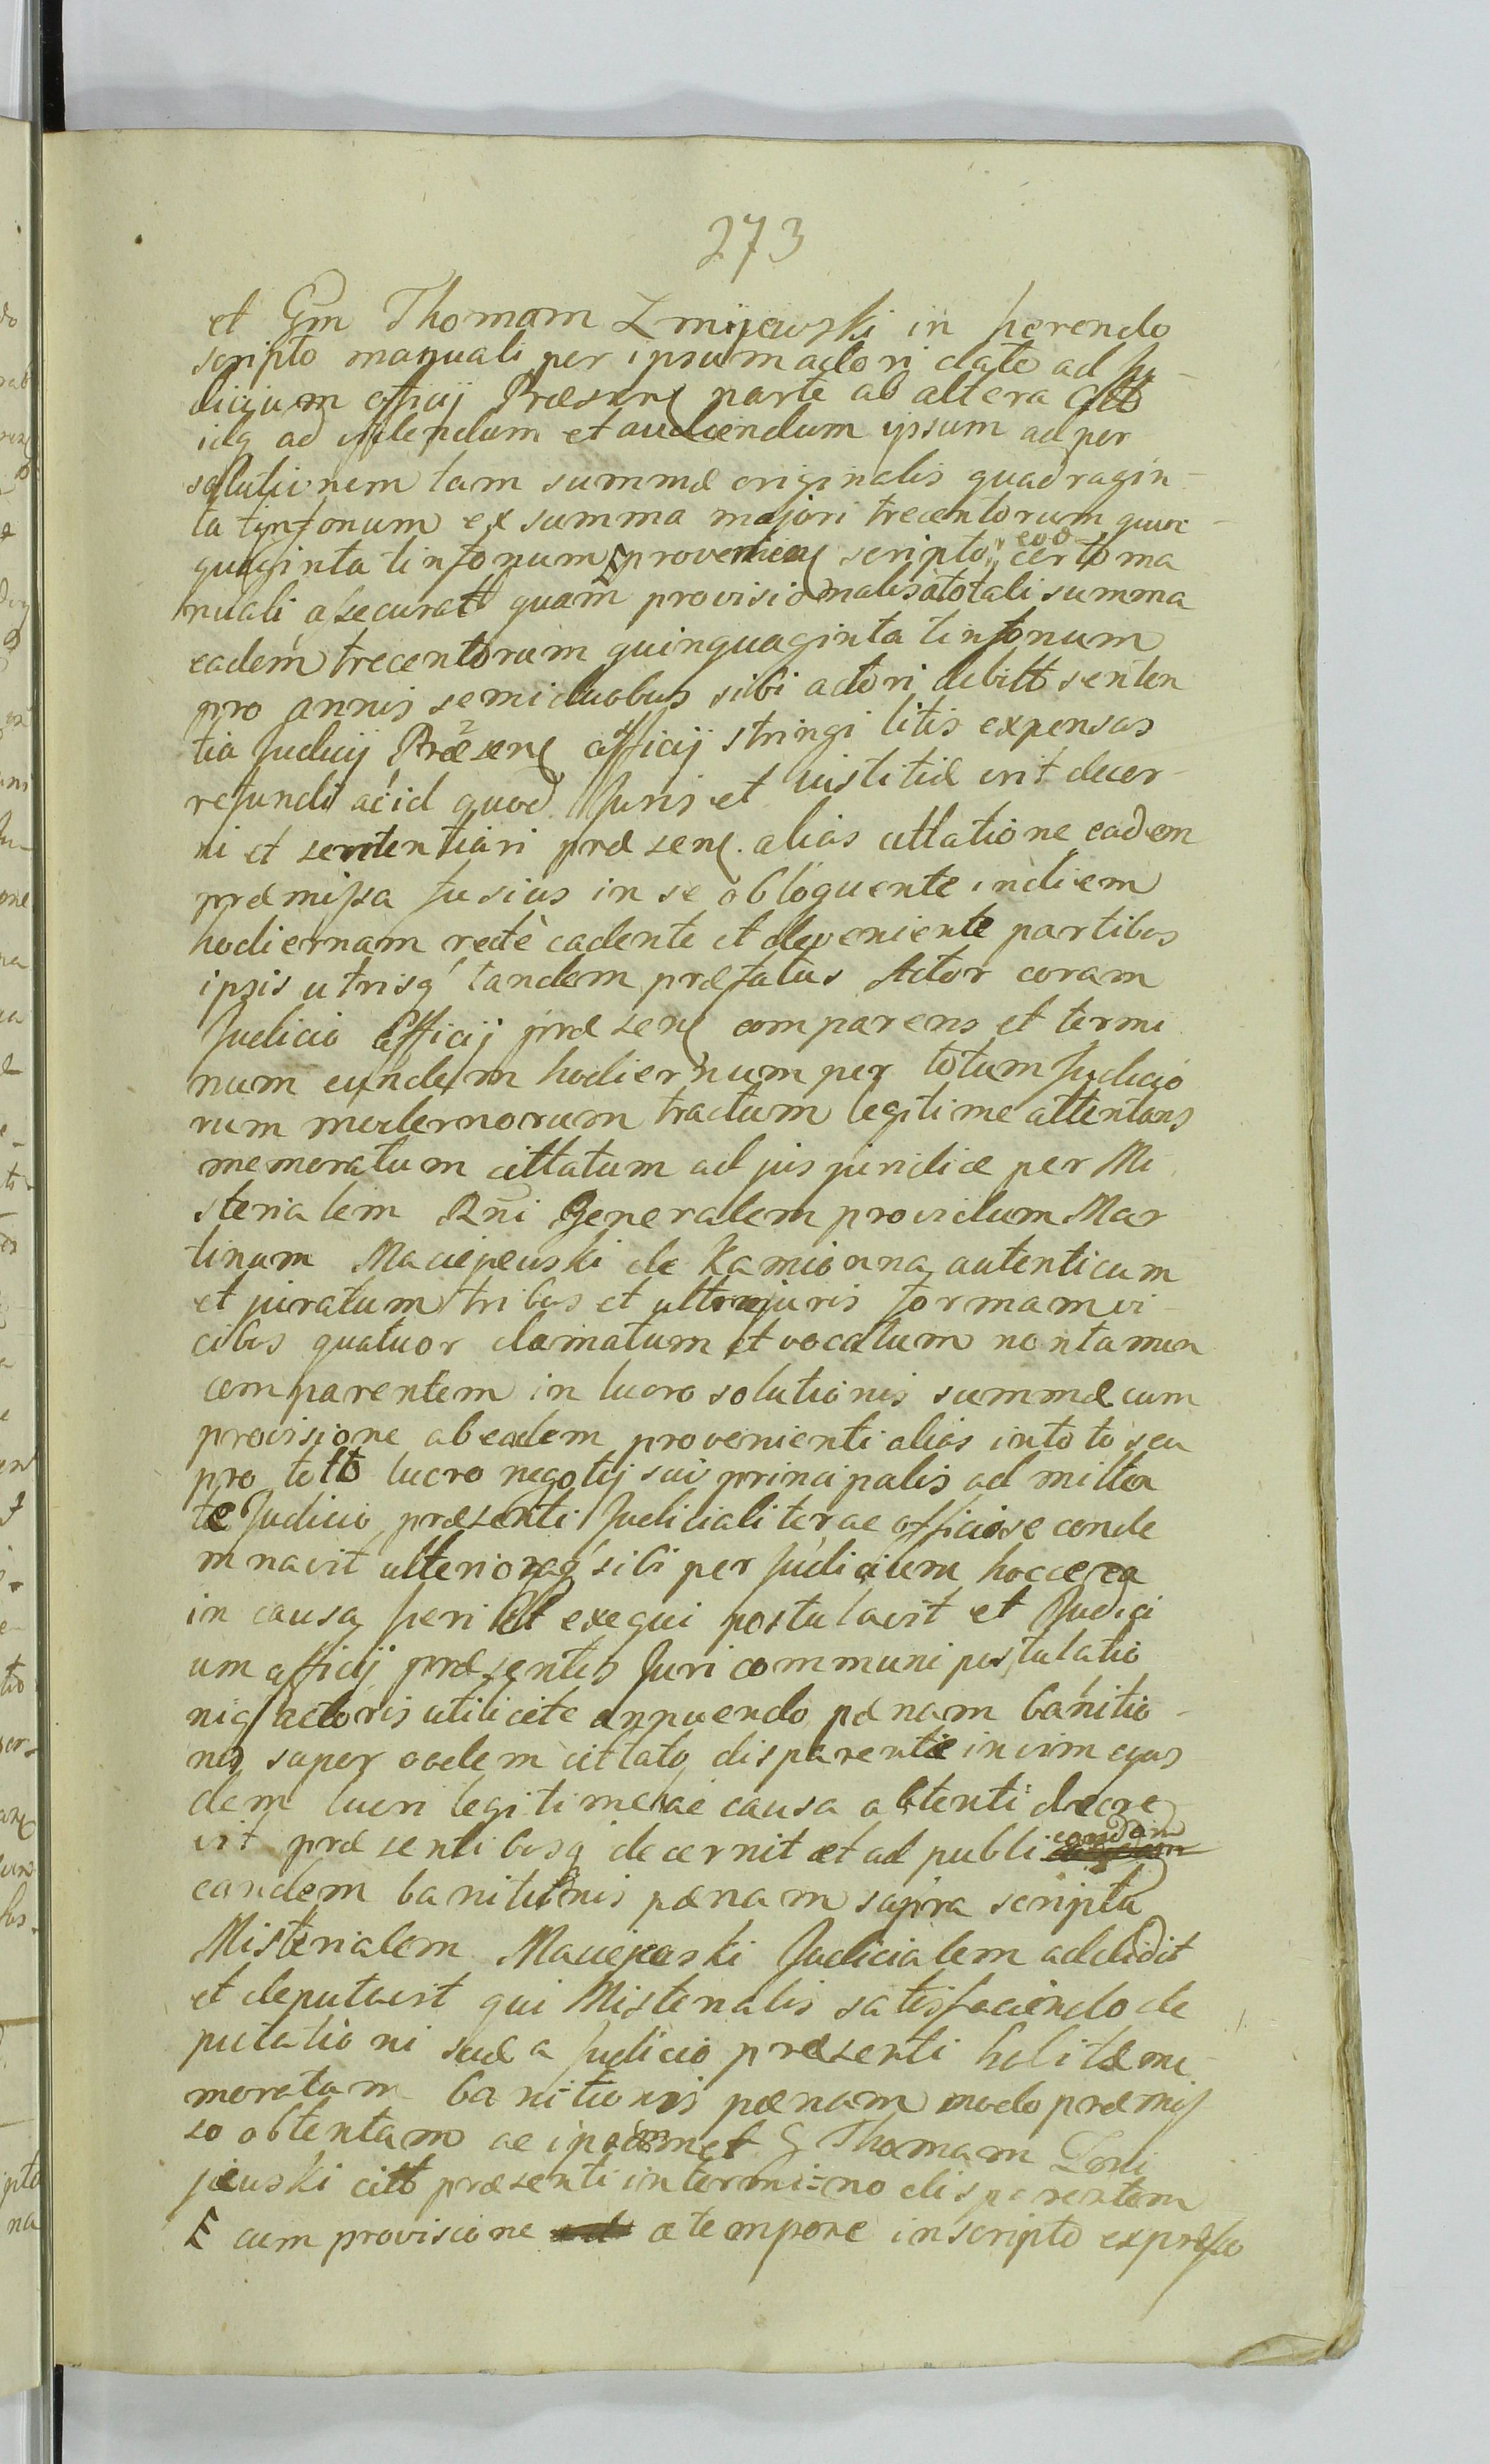 273
et Gm Thomam Zmijewski in perendo
scripto manuali per ipsum actori dato ad Ju-
dicium officij Præsens parte ab altera Citt
idq ad videndum et audiendum ipsum ad per
solutionem tam summæ originalis quadragin-
ta tinfonum ex summa majori trecentorum quin-
quaginta tinfonum provenien scripto eoo certo ma
nuali assecurat quam provisionalis a totali summa
eadem trecentorum quinquaginta tinfonum
pro annis semiduobus sibi actori debitt senten
tia Judicij Præsens officij stringi litis expensas
refundi ac id quod Juris et iustitiæ erit decer-
ni et sententiari præsens. alias cittatione eadem
præmissa fusius in se obloquente in diem
hodiernam rectè cadente et deveniente partibus
ipsis utrisq tandem præfatus Actor coram
Judicio officij præsens comparens et termi
num eundem hodiernum per totum Judicio
rum modernorum tractum legitime attentans
memoratum cittatum ad jus juridice per Mi
sterialem Rni Generalem providum Mar
tinum Maciejewski de Kamionna autenticum
et juratum tribus et ultra juris formam vi-
cibus quatuor clamatum et vocatum non tamen
comparentem in lucro solutionis summæ cum
provisione ab eadem provenienti alias in toto seu
pro totto lucro negotij sui principalis ad mitten
te Judicio præsenti Judicialiter ac officiose conde
mnavit ulterioraq sibi per Judicium hocce ea
in causa fieri et exequi postulavit et Judici
um officij præsentis Juri communi postulatio
niq actoris utilicite annuendo pænam banitio-
nis super eodem cittato disparente in vim ejus
dem lucri legitime ac causa obtenti decre
vit præsentibusq decernit et ad publicandam
eandem banitionis pænam supra scriptu
Misterialem Maciejeoski Judicialem addidit
et deputavit qui Misterialis satisfaciendo de
putationi suæ a Judicio præsenti habitæ me
moratam banitionis pænam modo præmis
so obtentam ac ipsummet G Thomam Zmi
jeuski citt præsenti in termi=no disparentem
E cum provisione a tempore in scripto expresso